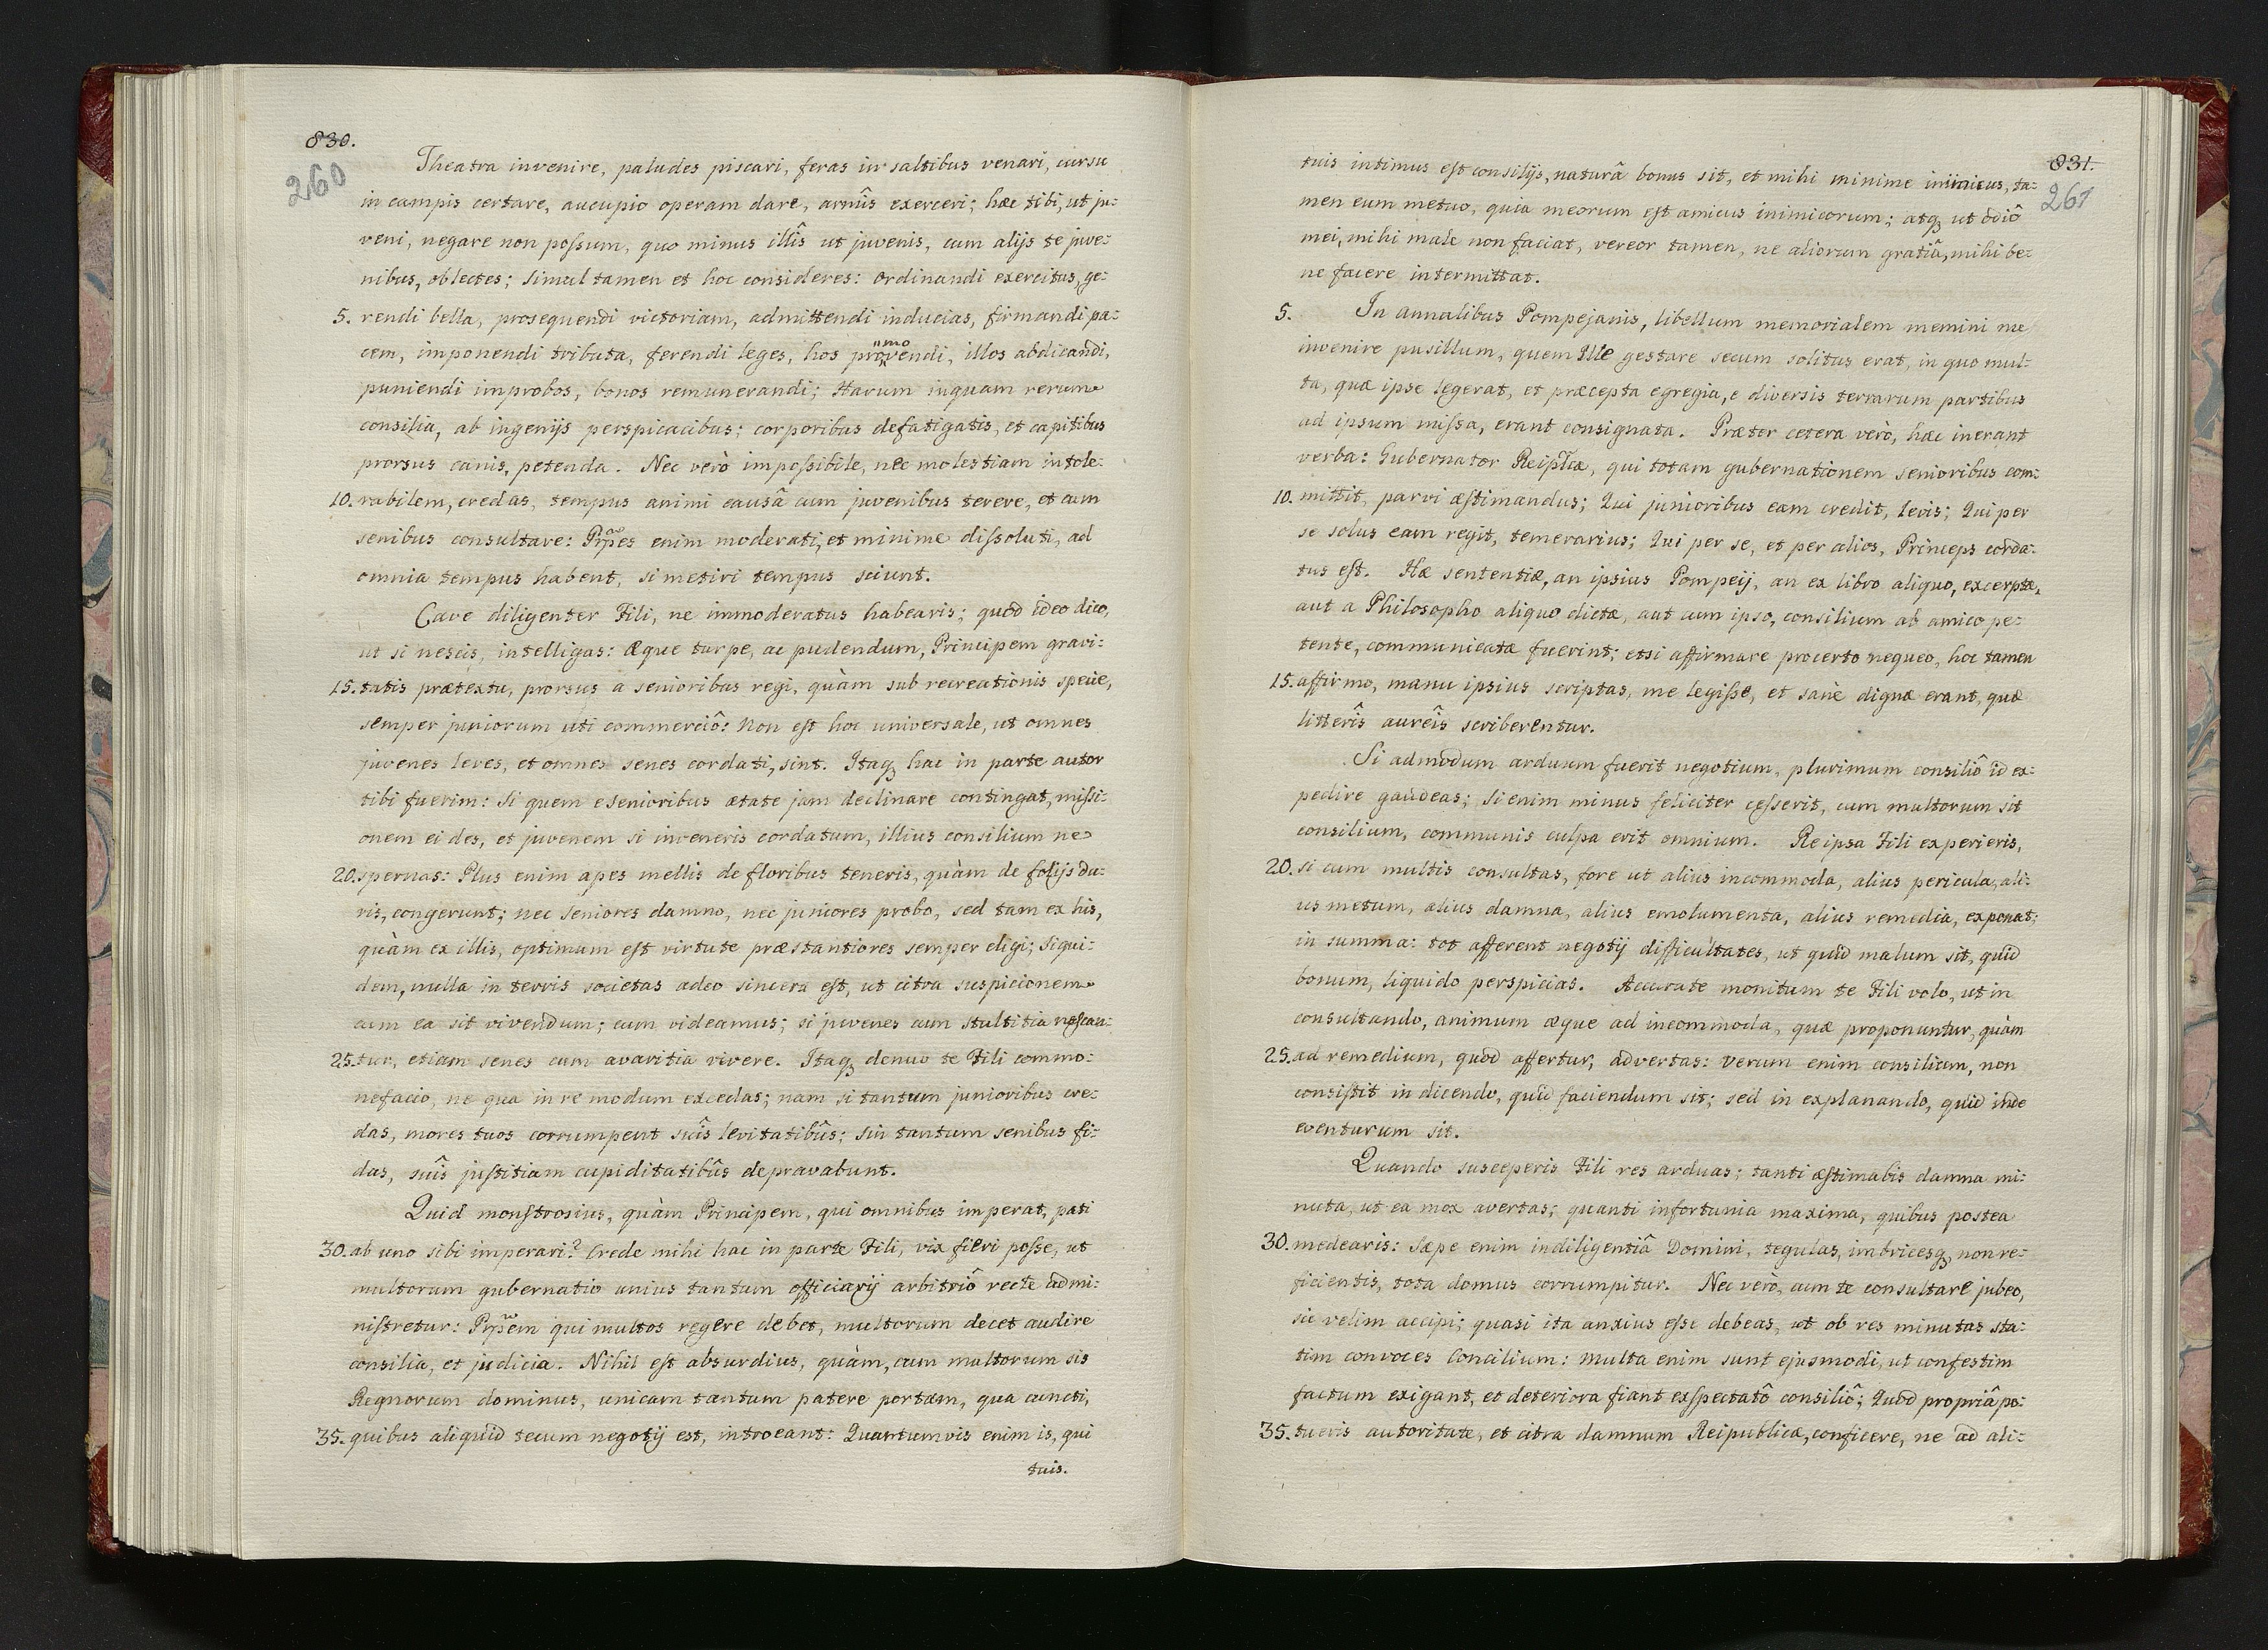 830.
260
Theatra invenire, paludes piscari, feras in saltibus venari, cursu
in campis certare, aucupio operam dare, armîs exerceri; hæc tibi, ut ju:
veni, negare non poſsum, quo minus illîs ut juvenis, cum alijs te juve:
nibus, oblectes; simul tamen et hoc consideres: ordinandi exercitus, ge:
5. rendi bella, prosequendi victoriam, admittendi inducias, firmandi pa:
cem, imponendi tributa, ferendi leges, hos provendi, illos abdicandi,
mo
puniendi improbos, bonos remunerandi; Harum inquam rerum
consilia, ab ingenijs perspicacibus; corporibus defatigatis, et capitibus
prorsus canis, petenda. Nec verò impoſsibile, nec molestiam intole:
10. rabilem, credas, tempus animi causâ cum juvenibus terere, et cum
senibus consultare: Prpes enim moderati, et minime diſsoluti, ad
omnia tempus habent, si metiri tempus sciunt.
Cave diligenter Fili, ne immoderatus habearis; quod ideo dico,
ut si nescis, intelligas: Æque turpe, ac pudendum, Principem gravi:
15. tatis prætextu, prorsus a senioribus regi, quàm sub recreationis specie,
semper juniorum uti commerciô: Non eſt hoc universale, ut omnes
juvenes leves, et omnes senes cordati, sint. Itaq hac in parte autor
tibi fuerim: Si quem e senioribus ætate jam declinare contingat, miſsi:
onem ei des, et juvenem si inveneris cordatum, illius consilium ne
20. spernas: Plus enim apes mellis de floribus teneris, quàm de folijs du:
ris, congerunt; nec seniores damno, nec juniores probo, sed tam ex his,
quàm ex illis, optimum eſt virtute præstantiores semper eligi; Siqui:
dem, nulla in terris societas adeo sincera eſt, ut citra suspicionem
cum ea sit vivendum; cum videamus; si juvenes cum stultitia nascan:
25. tur, etiam senes cum avaritia vivere. Itaq denuo te Fili commo:
nefacio, ne qua in re modum excedas; nam si tantum junioribus cre:
das, mores tuos corrumpent suîs levitatibûs; sin tantum senibus fi:
das, suîs juſtitiam cupiditatibûs depravabunt.
Quid monſtrosius, quàm Principem, qui omnibus imperat, pati
30. ab uno sibi imperari? Crede mihi hac in parte Fili, vix fieri poſse, ut
multorum gubernatio unius tantum officiarij arbitriô recte admi:
niſtretur: Prpem qui multos regere debet, multorum decet audire
consilia, et judicia. Nihil eſt absurdius, quàm, cum multorum sis
Regnorum dominus, unicam tantum patere portam, qua cuncti,
35. quibus aliquid tecum negotij est, introeant: Quantumvis enim is, qui
tuis.
831.
261
tuis intimus eſt consilijs, naturâ bonus sit, et mihi minime inimicus, ta:
men eum metuo, quia meorum eſt amicus inimicorum; atq ut odiô
mei, mihi male non faciat, vereor tamen, ne aliorum gratiâ, mihi be:
ne facere intermittat.
5. In annalibus Pompejanis, libellum memorialem memini me
invenire pusillum, quem Ille gestare secum solitus erat, in quo mul:
ta, quæ ipse legerat, et præcepta egregia, e diversis terrarum partibus
ad ipsum miſsa, erant consignata. Præter cetera verò, hæc inerant
verba: Gubernator Reiplcæ, qui totam gubernationem senioribus com:
10. mittit, parvi æſtimandus; Qui junioribus eam credit, levis; Qui per
se solus eam regit, temerarius; Qui per se, et per alios, Princeps corda:
tus eſt. Hæ sententiæ, an ipsius Pompeij, an ex libro aliquo, excerptæ,
aut a Philosopho aliquo dictæ, aut cum ipso, consilium ab amico pe:
tente, communicatæ fuerint; etsi affirmare procerto nequeo, hoc tamen
15. affirmo, manu ipsius scriptas, me legiſse, et sanè dignæ erant, quæ
litterîs aureîs scriberentur.
Si admodum arduum fuerit negotium, plurimum consiliô id ex:
pedire gaudeas; si enim minus feliciter ceſserit, cum multorum sit
consilium, communis culpa erit omnium. Reipsa Fili experieris,
20. si cum multis consultas, fore ut alius incommoda, alius pericula, ali:
us metum, alius damna, alius emolumenta, alius remedia, exponat;
in summa: tot afferent negotij difficultates, ut quid malum sit, quid
bonum, liquido perspicias. Accurate monitum te Fili volo, ut in
consultando, animum æque ad incommoda, quæ proponuntur, quàm
25. ad remedium, quod affertur, advertas: Verum enim consilium, non
consiſtit in dicendo, quid faciendum sit; sed in explanando, quid inde
eventurum sit.
Quando susceperis Fili res arduas; tanti æſtimabis damna mi:
nuta, ut ea mox avertas; quanti infortunia maxima, quibus postea
30. medearis: Sæpe enim indiligentiâ Domini, tegulas, imbricesq, non re:
ficientis, tota domus corrumpitur. Nec verò, cum te consultare jubeo,
sic velim accipi; quasi ita anxius eſse debeas, ut ob res minutas sta:
tim convoces Concilium: Multa enim sunt ejusmodi, ut confestim
factum exigant, et deteriora fiant exſpectatô consiliô; Quod propriâ po:
35. tueris autoritate, et citra damnum Reipublicæ, conficere, ne ad ali: